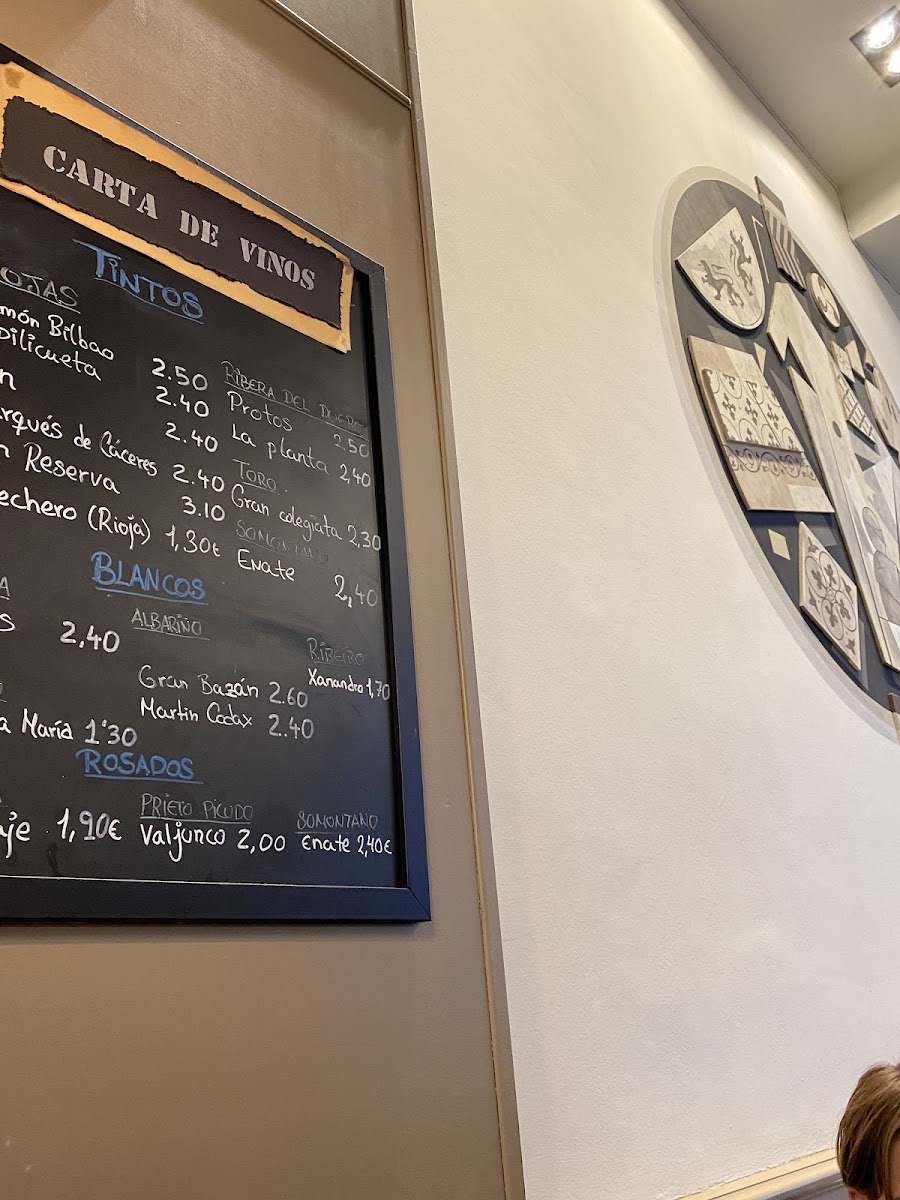 CARTA DE VINOS
TINTOS
OJAS
món Bilbao 2.50
Dilicueta 2.40
n 2.40
arqués de Cáceres 2.40
n Reserva 3.10
echero (Rioja) 1,30€
RIBERA DEL DUERO
Protos 2,50
La planta 2,40
TORO
Gran colegiata 2,30
SOMONTANO
Enate 2,40
BLANCOS
A
s 2,40
a María 1'30
ALBARIÑO
Gran Bazán 2.60
Martin Codax 2.40
RIBEIRO
Xanandro 1,70
ROSADOS
aje 1,90€
PRIETO PICUDO
Valjunco 2,00
SOMONTANO
Enate 2,40€